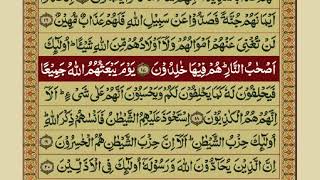 اَيْمَانَهُمْ جُنَّةً فَصَدُّوْا عَنْ سَبِيْلِ اللّٰهِ فَلَهُمْ عَذَابٌ مُّهِيْنٌ ﴿۱۶﴾
لَنْ تُغْنِيَ عَنْهُمْ اَمْوَالُهُمْ وَلَاۤ اَوْلَادُهُمْ مِّنَ اللّٰهِ شَيْـًٔا ؕ اُولٰٓئِكَ
اَصْحٰبُ النَّارِ ؕ هُمْ فِيْهَا خٰلِدُوْنَ ﴿۱۷﴾ يَوْمَ يَبْعَثُهُمُ اللّٰهُ جَمِيْعًا
فَيَحْلِفُوْنَ لَهٗ كَمَا يَحْلِفُوْنَ لَكُمْ وَيَحْسَبُوْنَ اَنَّهُمْ عَلٰى شَيْءٍ ؕ اَلَاۤ
اِنَّهُمْ هُمُ الْكٰذِبُوْنَ ﴿۱۸﴾ اِسْتَحْوَذَ عَلَيْهِمُ الشَّيْطٰنُ فَاَنْسٰىهُمْ ذِكْرَ اللّٰهِ ؕ
اُولٰٓئِكَ حِزْبُ الشَّيْطٰنِ ؕ اَلَاۤ اِنَّ حِزْبَ الشَّيْطٰنِ هُمُ الْخٰسِرُوْنَ ﴿۱۹﴾
اِنَّ الَّذِيْنَ يُحَآدُّوْنَ اللّٰهَ وَرَسُوْلَهٗۤ اُولٰٓئِكَ فِي الْاَذَلِّيْنَ ﴿۲۰﴾